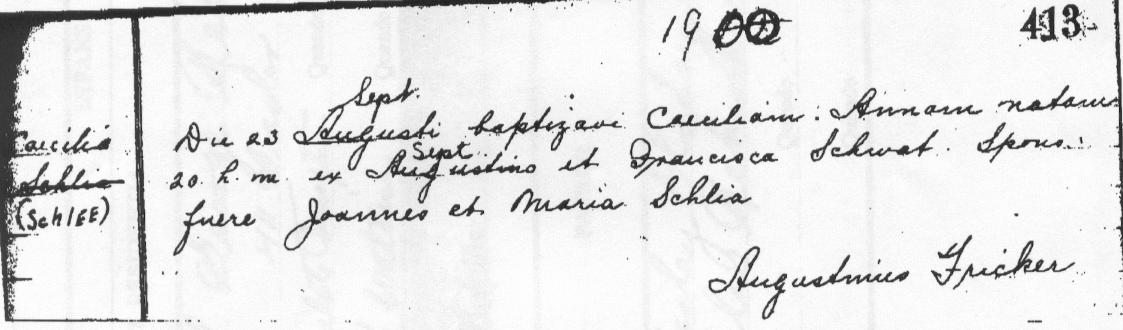 1900
413
Caecilia
Schlia
(SchlEE)
Sept.
Die 23 Augusti baptizavi Caeciliam. Annam natam
Sept
20 h. m. ex Augustino et Francisca Schwat. Spons:
fuere Joannes et Maria Schlia
Augustinius Fricker